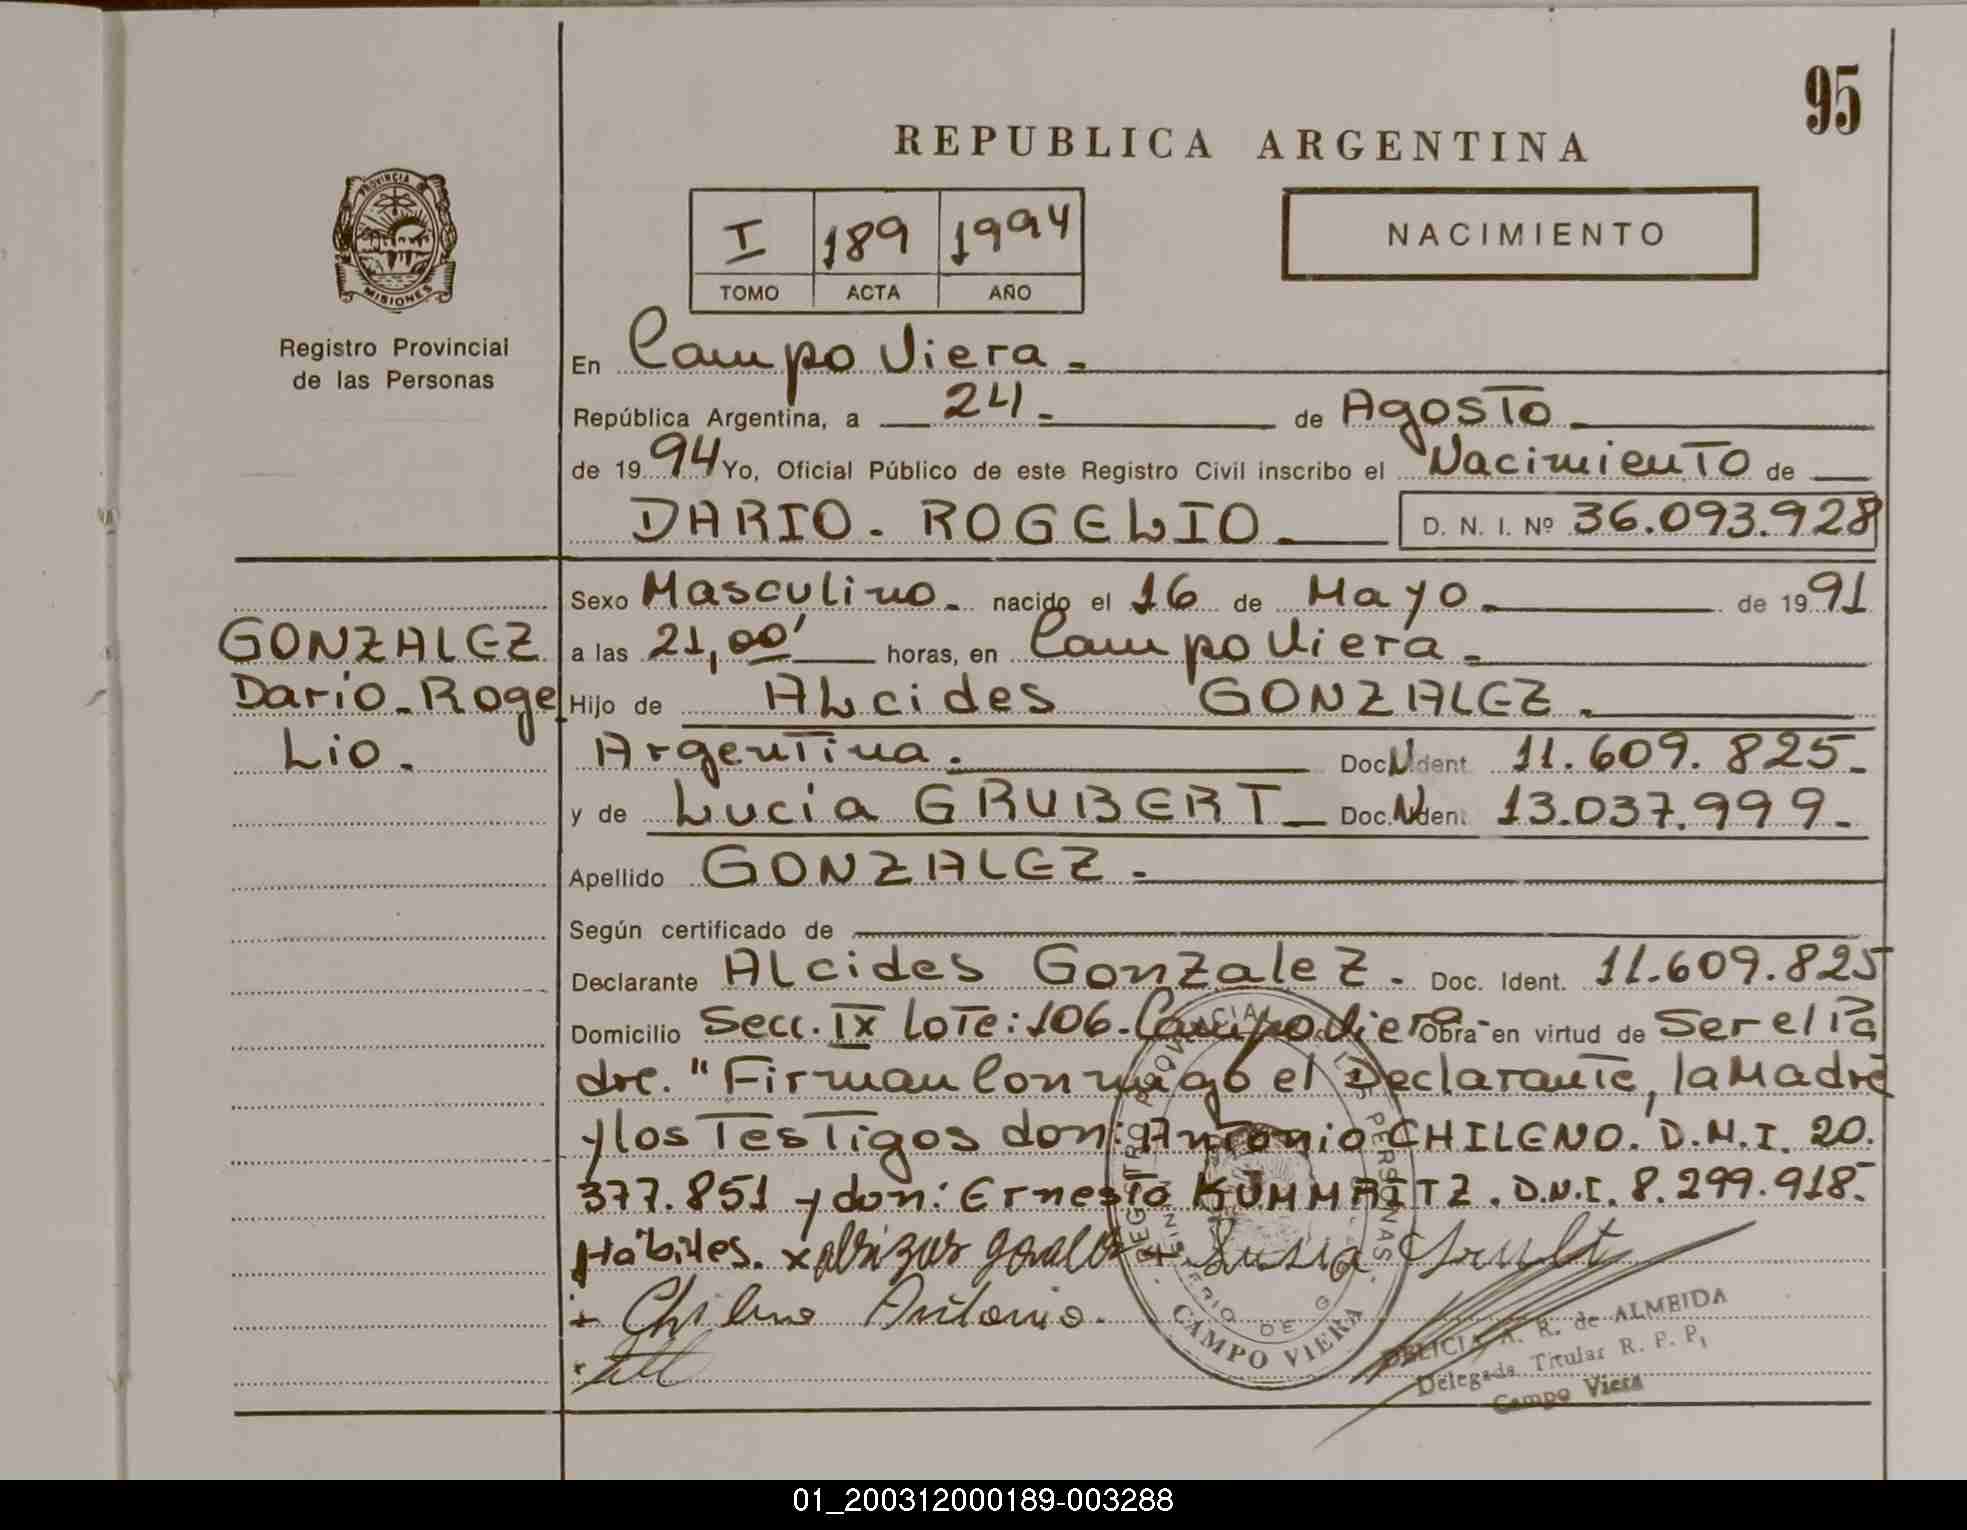 95
REPUBLICA ARGENTINA
PROVINCIA DE
MISIONES
Registro Provincial
de las Personas
I 189 1994
TOMO ACTA AÑO
NACIMIENTO
En Campo Viera.
República Argentina, a 24. de Agosto
de 19 94 Yo, Oficial Público de este Registro Civil inscribo el Nacimiento de
DARIO. ROGELIO. D. N. I. Nº 36.093.928
GONZALEZ
Dario. Roge
Lio.
Sexo Masculino. nacido el 16 de Mayo. de 19 91
a las 21,00' horas, en Campo Viera.
Hijo de ALcides GONZALEZ.
Argentina. Doc. N Ident. 11.609.825.
y de Lucia GRUBERT Doc. N Ident. 13.037.999.
Apellido GONZALEZ.
Según certificado de
Declarante ALcides GonzaleZ. Doc. Ident. 11.609.825
Domicilio Secc. IX Lote: 106. Campo Viera Obra en virtud de Ser el Pa
dre. "Firman Conmigo el Declarante, la Madre
y los Testigos don: Antonio CHILENO. D.N.I. 20.
377.851 y don: Ernesto KUMMRITZ. D.N.I. 8.299.918.
Hábiles. x
+ Chileno Antonio.
REGISTRO PROVINCIAL DE LAS PERSONAS
MINISTERIO DE G
CAMPO VIERA
DELICIA A. R. de ALMEIDA
Delegada Titular R. P. P.
Campo Viera
01_200312000189-003288